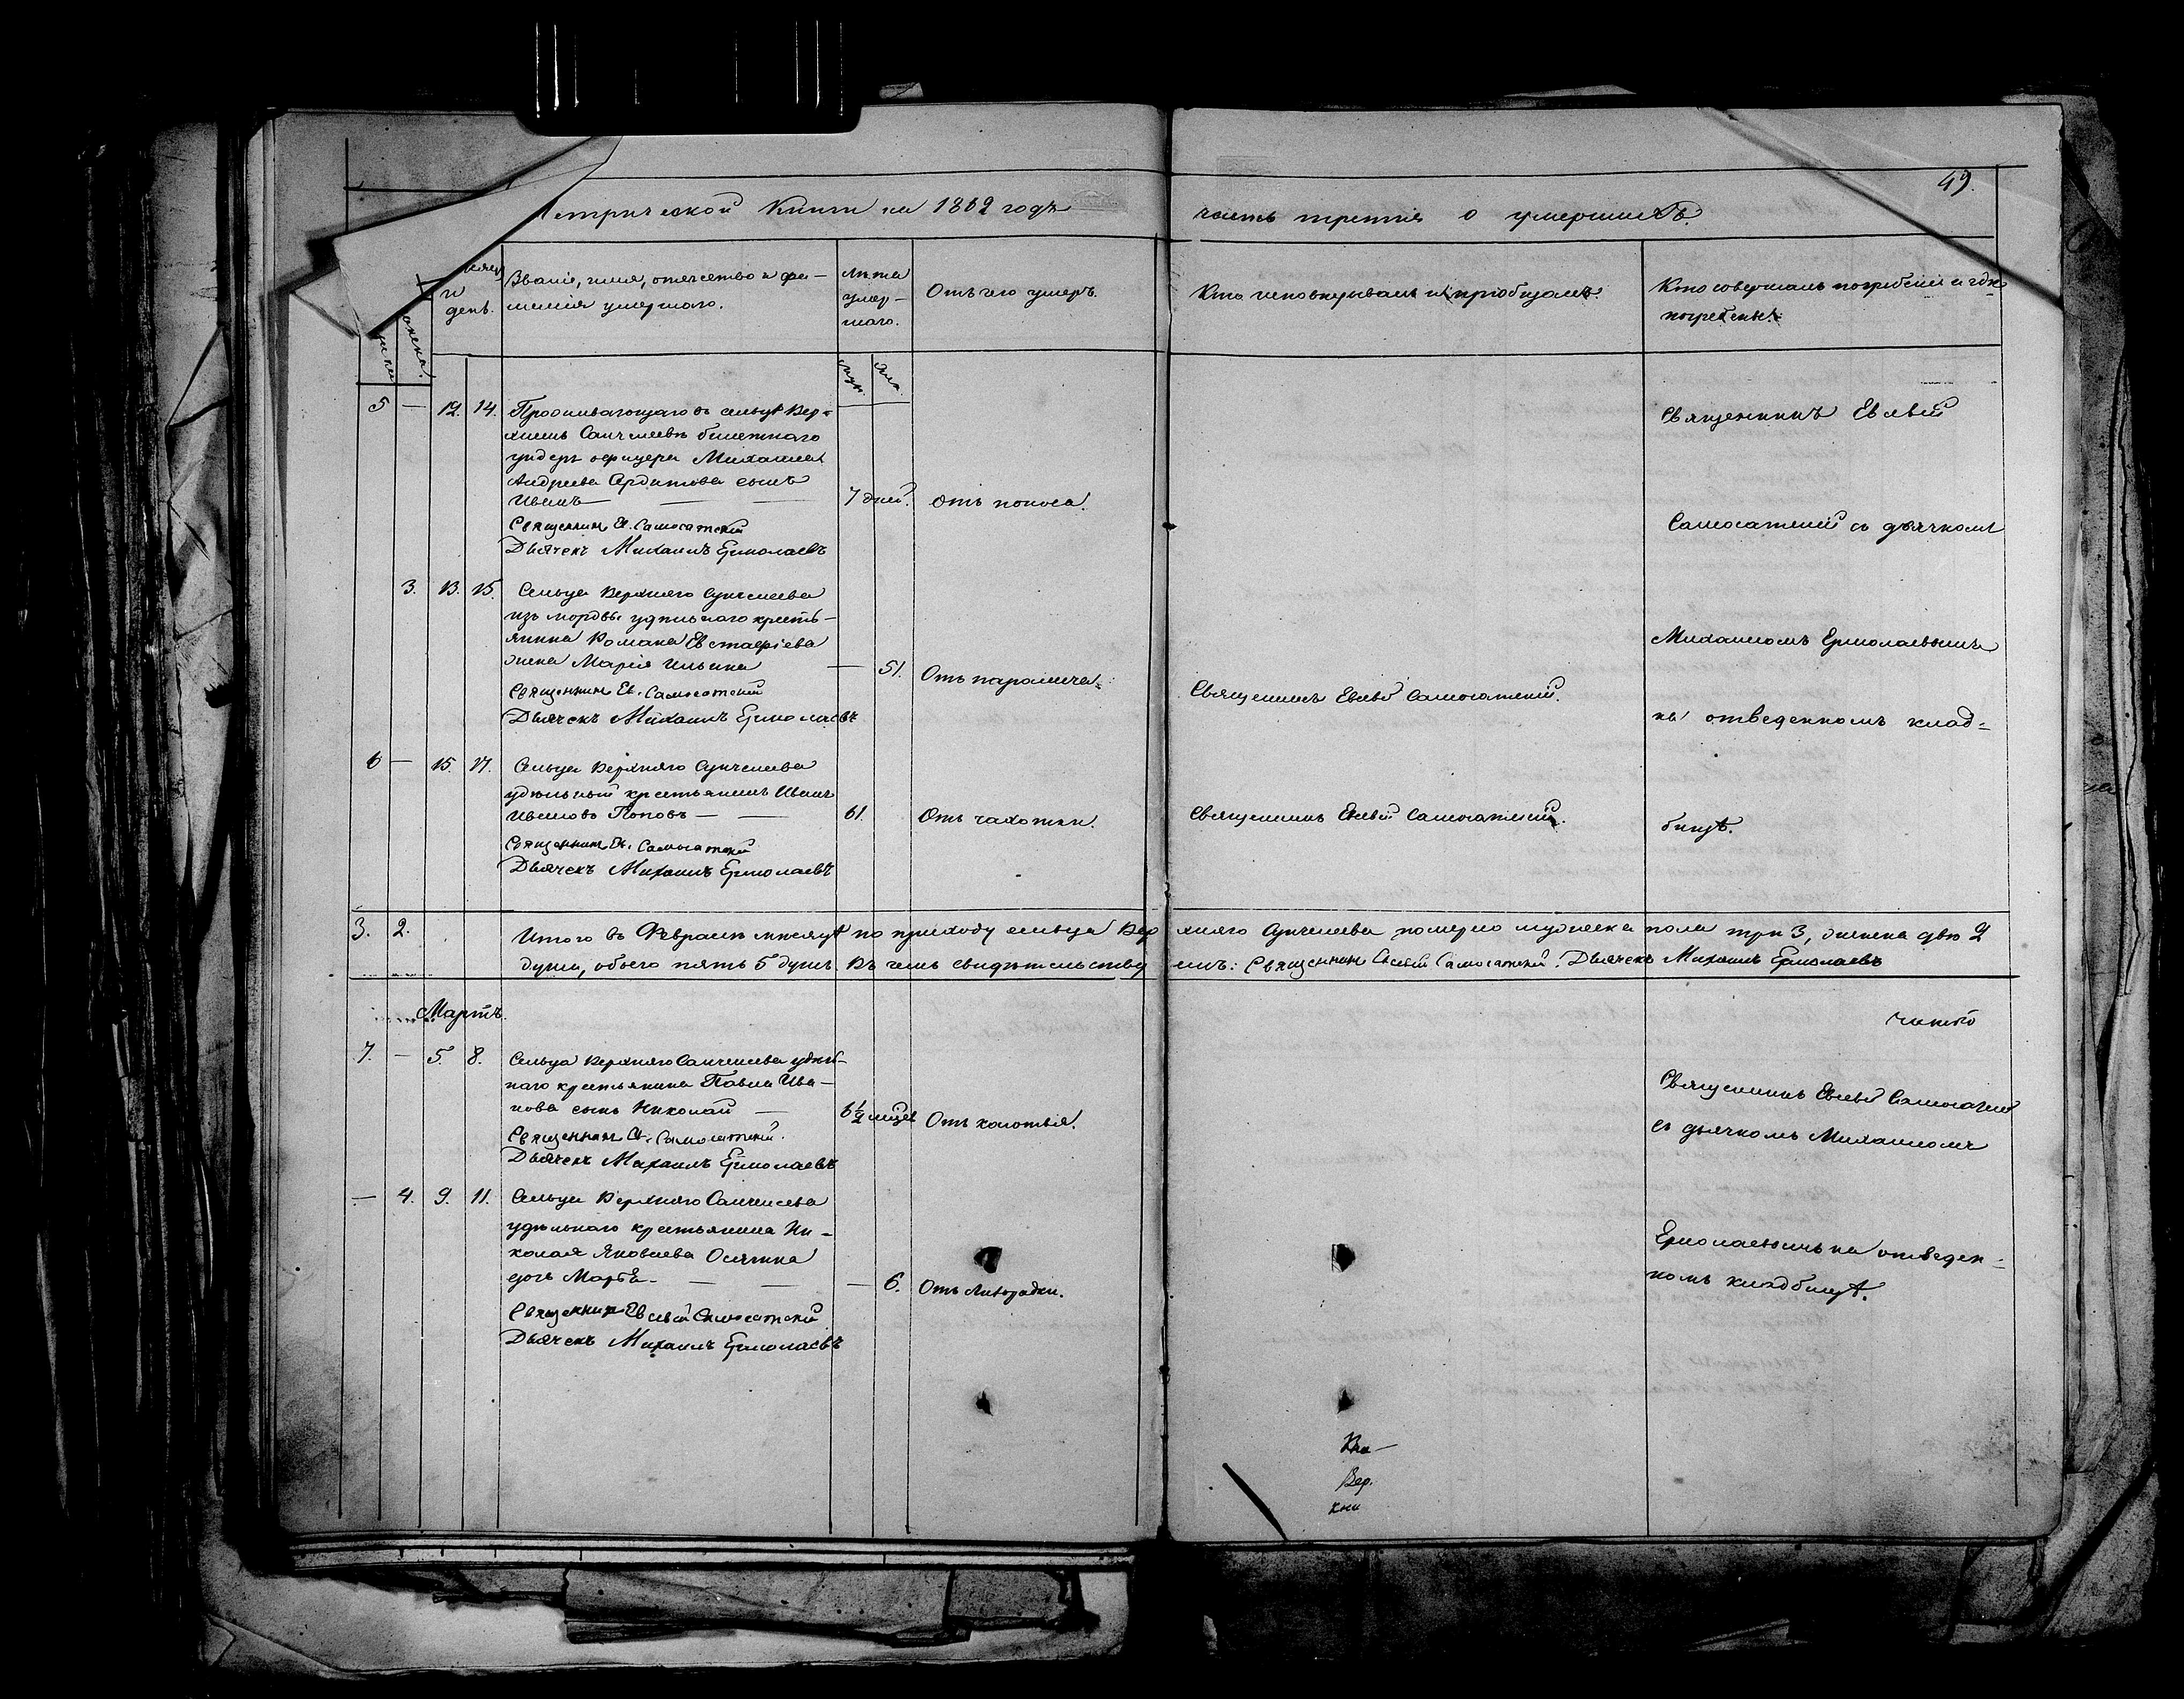 49.
етрической Книги на 1862 годъ часть третія о умершихъ.
и день.
Званіе, имя, отчество и фамилія умершаго.
Лѣта умершаго.
Отъ чего умеръ.
Кто исповѣдывалъ и пріобщалъ.
Кто совершалъ погребеніе и гдѣ погребены.
5 — 12. 14. Проживающаго въ сельцѣ Вер-
хнемъ Санчелеевѣ билетнаго
ундеръ офицера Михаила
Андреева Ардатова сынъ
Иванъ — — 7 дней. Отъ поноса.
Священникъ Ев. Самосатскій
Дьячекъ Михаилъ Ермолаевъ
Священникъ Евсевій
Самосатскій съ дьячкомъ
3. 13. 15. Сельца Верхняго Сунчелеева
изъ мордвы удѣльнаго кресть-
янина Романа Евстафіева
жена Марія Ильина — 51. Отъ паралича.
Священникъ Ев. Самосатскій
Дьячекъ Михаилъ Ермолаевъ
Священникъ Евсевій Самосатскій.
Михаиломъ Ермолаевымъ
на отведенномъ клад-
6 — 15. 17. Сельца Верхняго Сунчелеева
удѣльный крестьянинъ Иванъ
Ивановъ Поповъ — — 61. Отъ чахотки.
Священникъ Ев. Самосатскій
Дьячекъ Михаилъ Ермолаевъ
Священникъ Евсевій Самосатскій.
бищѣ.
3. 2. Итого въ Февралѣ мѣсяцѣ по приходу сельца Верхняго Сунчелеева померло мужеска пола три 3, женска двѣ 2
души, обоего пять 5 душъ. Въ чемъ свидѣтельствуемъ: Священникъ Евсевій Самосатскій. Дьячекъ Михаилъ Ермолаевъ
Мартъ.
7. — 5. 8. Сельца Верхняго Санчелеева удѣль-
наго крестьянина Павла Ива-
нова сынъ Николай — 6½ мѣся Отъ колотья.
Священникъ Ев. Самосатскій.
Дьячекъ Михаилъ Ермолаевъ
Священникъ Евсевій Самосатскій
съ дьячкомъ Михаиломъ
— 4. 9. 11. Сельца Верхняго Санчелеева
удѣльнаго крестьянина Ни-
колая Яковлева
дочь Марѳа — — — 6. Отъ лихорадки.
Священникъ Евсевій Самосатскій
Дьячекъ Михаилъ Ермолаевъ
Ермолаевымъ на отведен-
номъ кладбищѣ.
Вер.
хни